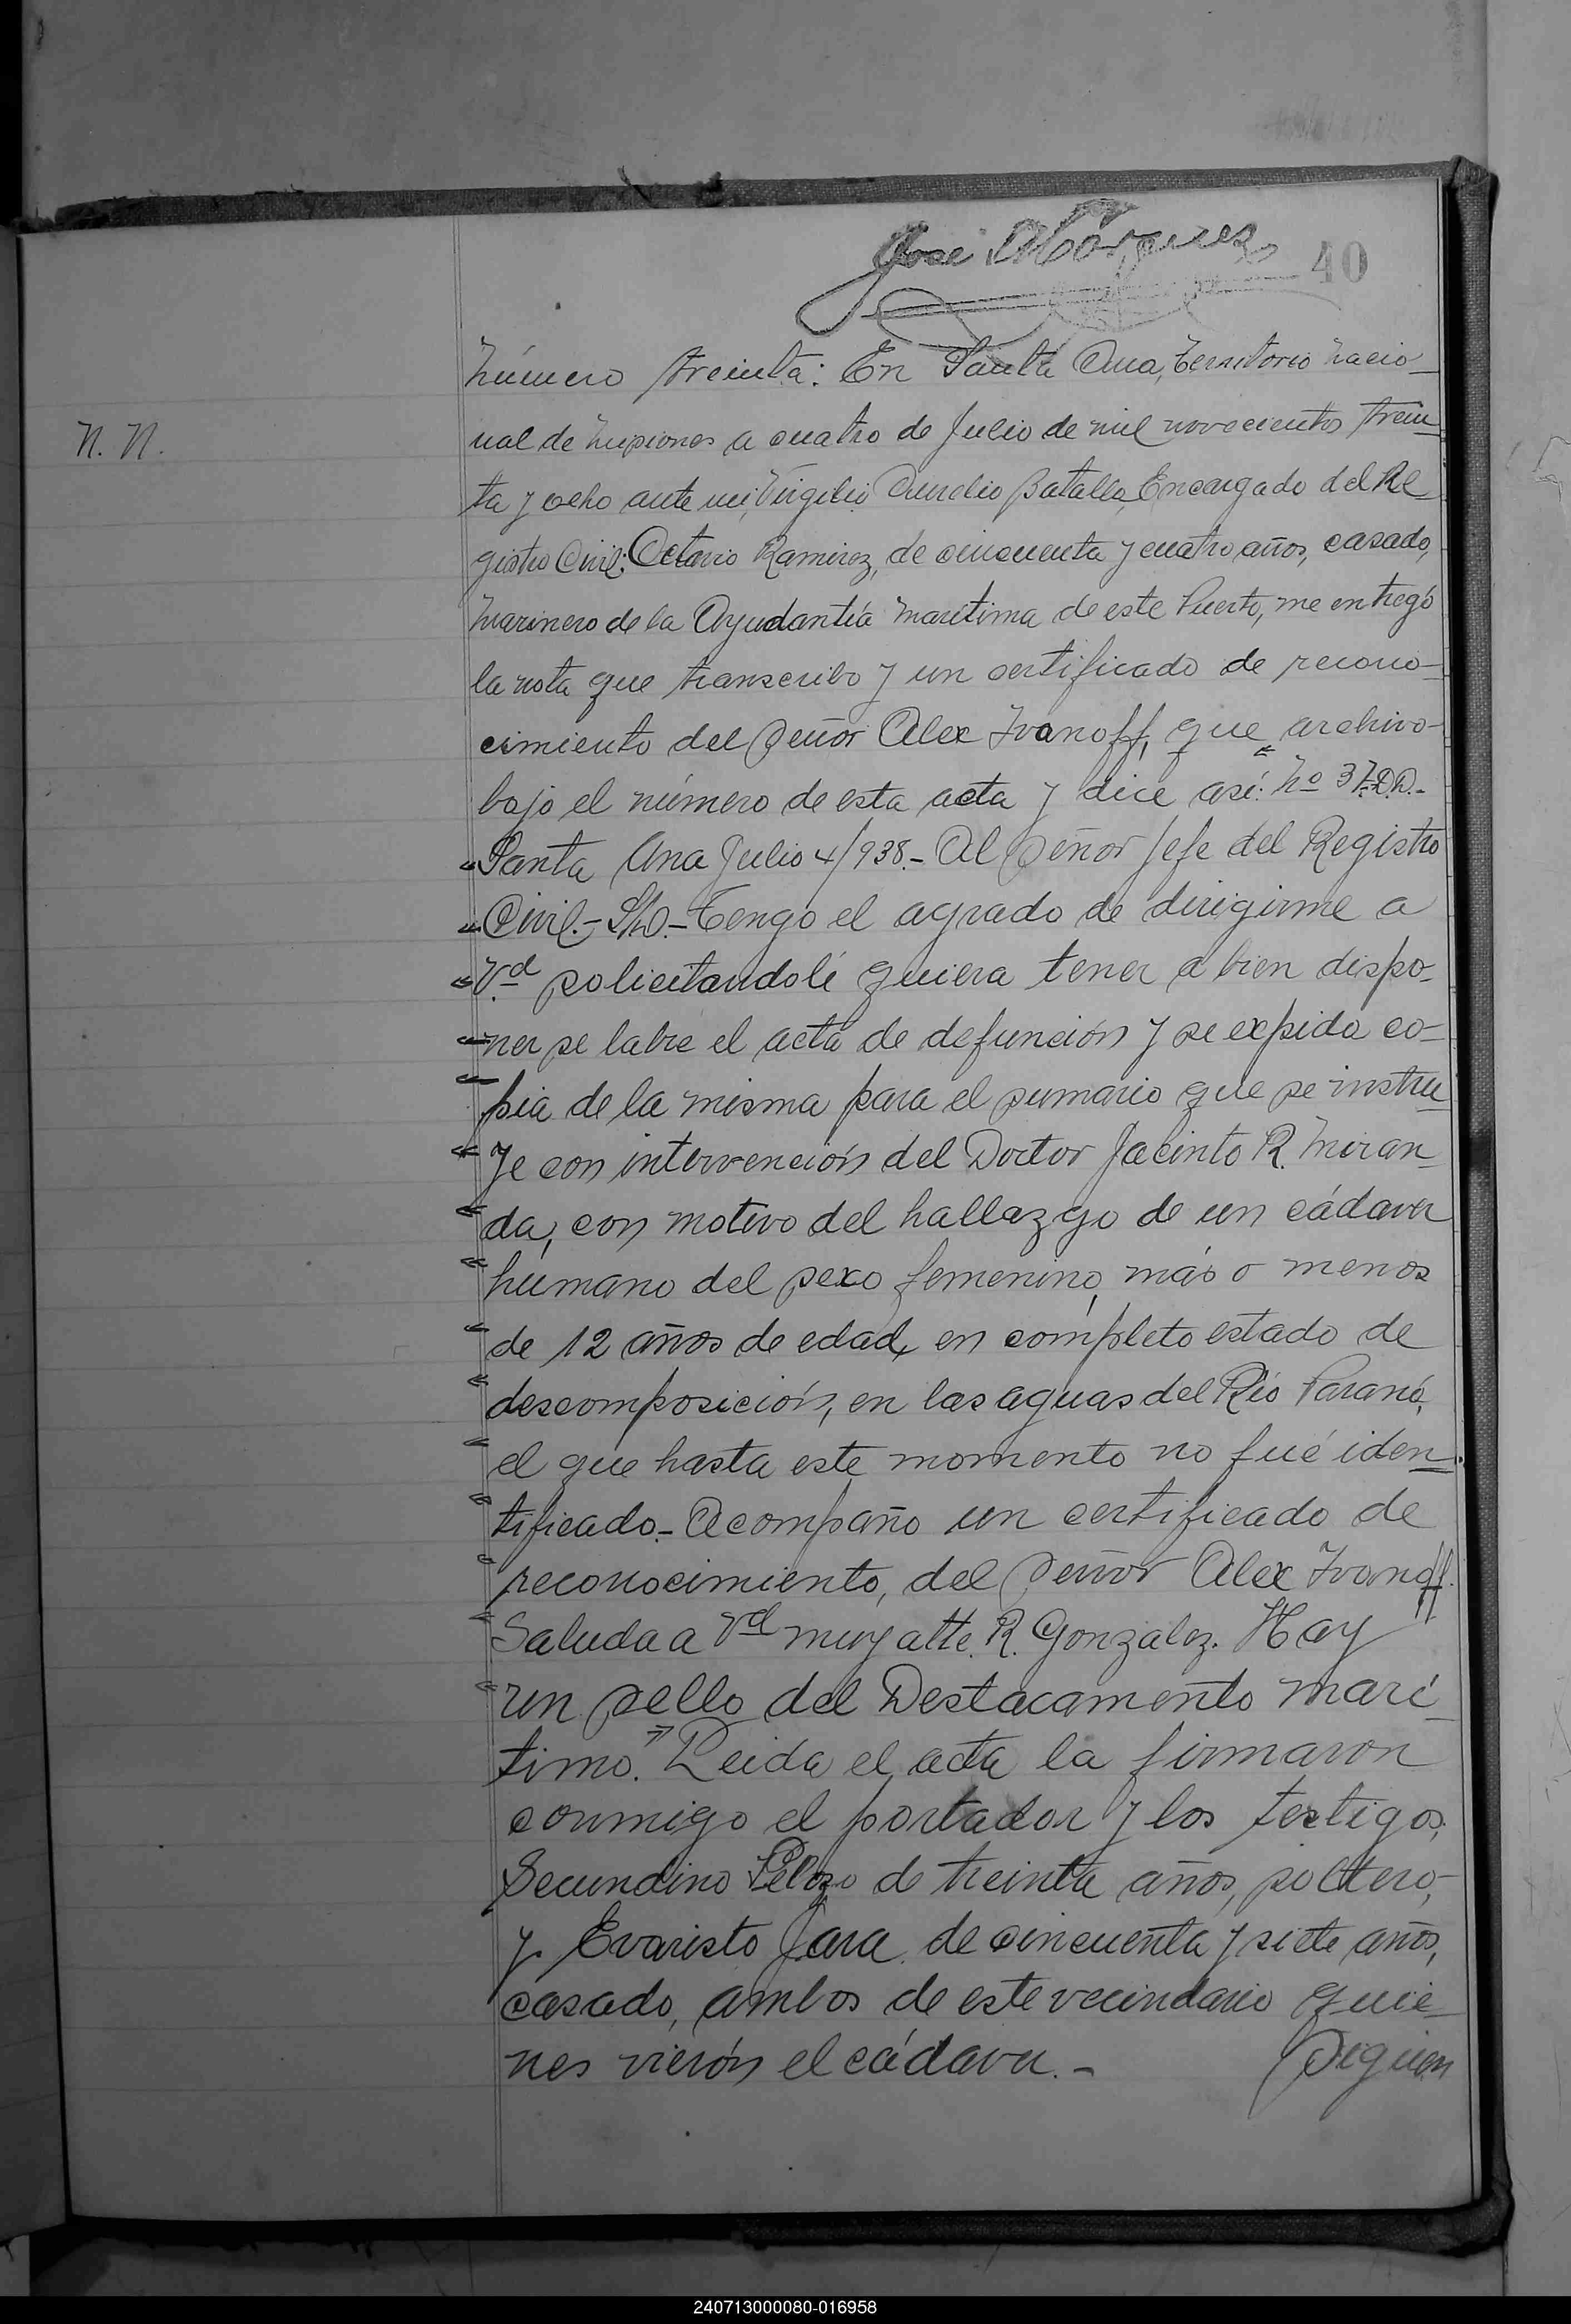 José Márquez
40
N. N.
Número treinta: En Santa Ana, Territorio Nacio-
nal de Misiones a cuatro de Julio de mil novecientos trein-
ta y ocho ante mi, Virgilio Aurelio Batalla, Encargado del Re
gistro Civil: Octavio Ramirez, de cincuenta y cuatro años, casado,
Marinero de la Ayudantía Maritima de este Puerto, me entregó
la nota que transcribo y un certificado de recono-
cimiento del Señor Alex Ivanoff, que archivo-
bajo el número de esta acta y dice así: "No 37. D.D.-
"Santa Ana Julio 4/938.- Al Señor Jefe del Registro
"Civil.- S/D.- Tengo el agrado de dirigirme a
"Vd solicitandole quiera tener a bien dispo-
"ner se labre el acta de defunción y se expida co-
"pia de la misma para el sumario que se instru-
"ye con intervención del Doctor Jacinto R. Miran-
"da, con motivo del hallazgo de un cádaver
"humano del sexo femenino, más o menos
"de 12 años de edad, en completo estado de
"descomposición, en las aguas del Río Paraná,
"el que hasta este momento no fué iden-
"tificado.- Acompaño un certificado de
"reconocimiento, del Señor Alex Ivanoff.
"Saluda a Vd muy atte. R. Gonzalez. Hay
"un sello del Destacamento Marí-
timo." Leida el acta la firmaron
conmigo el portador y los testigos,
Secundino Pelozo de treinta años, soltero,-
y Evaristo Jara de cincuenta y siete años,
casado, ambos de este vecindario quie-
nes vierón el cádaver.- Siguen
240713000080-016958